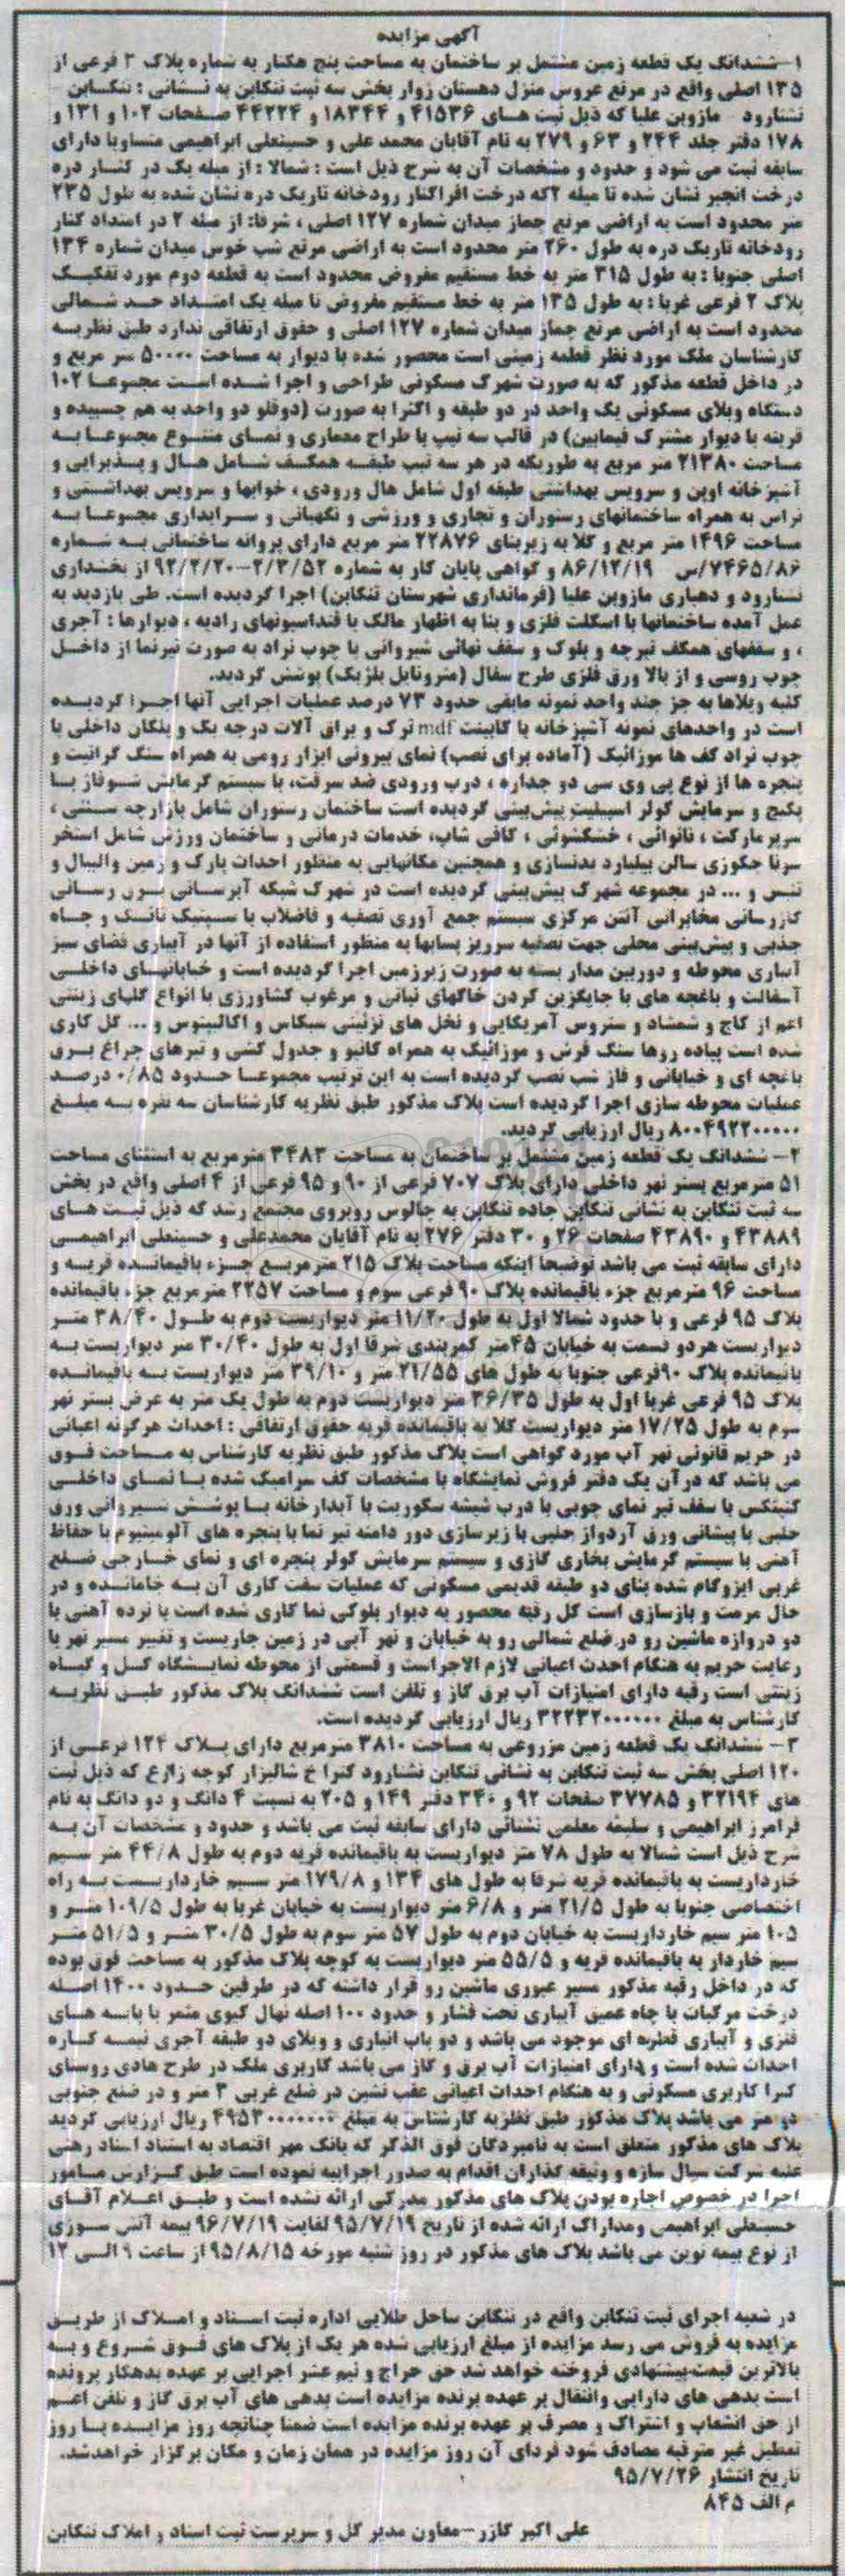 آگهی مزایده
۱-ششدانگ یک قطعه زمین مشتمل بر ساختمان به مساحت پنج هکتار به شماره پلاک ۳ فرعی از
۱۳۵ اصلی واقع در مرتع عروس منزل دهستان زوار بخش سه ثبت تنکابن به نشانی : تنکابن -
نشتارود - مازوبن علیا که ذیل ثبت های ۴۱۵۳۶ و ۱۸۳۴۴ و ۴۴۲۲۴ صفحات ۱۰۲ و ۱۳۱ و
۱۷۸ دفتر جلد ۲۴۴ و ۶۳ و ۲۷۹ به نام آقایان محمد علی و حسینعلی ابراهیمی متساویا دارای
سابقه ثبت می شود و حدود و مشخصات آن به شرح ذیل است : شمالا : از میله یک در کنار دره
درخت انجیر نشان شده تا میله ۲که درخت افراکنار رودخانه تاریک دره نشان شده به طول ۲۳۵
متر محدود است به اراضی مرتع جماز میدان شماره ۱۲۷ اصلی ، شرقا: از میله ۲ در امتداد کنار
رودخانه تاریک دره به طول ۲۶۰ متر محدود است به اراضی مرتع شب خوس میدان شماره ۱۳۴
اصلی جنوبا : به طول ۳۱۵ متر به خط مستقیم مفروض محدود است به قطعه دوم مورد تفکیک
پلاک ۲ فرعی غربا : به طول ۱۳۵ متر به خط مستقیم مفروض تا میله یک امتداد حد شمالی
محدود است به اراضی مرتع جماز میدان شماره ۱۲۷ اصلی و حقوق ارتفاقی ندارد طبق نظریه
کارشناسان ملک مورد نظر قطعه زمینی است محصور شده با دیوار به مساحت ۵۰۰۰۰ متر مربع و
در داخل قطعه مذکور که به صورت شهرک مسکونی طراحی و اجرا شده است مجموعا ۱۰۲
دستگاه ویلای مسکونی یک واحد در دو طبقه و اکثرا به صورت (دوقلو دو واحد به هم چسبیده و
قرینه با دیوار مشترک فیمابین) در قالب سه تیپ با طراح معماری و نمای متنوع مجموعا به
مساحت ۲۱۳۸۰ متر مربع به طوریکه در هر سه تیپ طبقه همکف شامل هال و پذیرایی و
آشپزخانه اوپن و سرویس بهداشتی طبقه اول شامل هال ورودی ، خوابها و سرویس بهداشتی و
تراس به همراه ساختمانهای رستوران و تجاری و ورزشی و نگهبانی و سرایداری مجموعا به
مساحت ۱۴۹۶ متر مربع و کلا به زیربنای ۲۲۸۷۶ متر مربع دارای پروانه ساختمانی به شماره
۷۴۶۵/۸۶/س ۸۶/۱۲/۱۹ و گواهی پایان کار به شماره ۲/۳/۵۲-۹۲/۲/۲۰ از بخشداری
نشتارود و دهیاری مازوبن علیا (فرمانداری شهرستان تنکابن) اجرا گردیده است. طی بازدید به
عمل آمده ساختمانها با اسکلت فلزی و بنا به اظهار مالک با فنداسیونهای رادیه ، دیوارها : آجری
، و سقفهای همکف تیرچه و بلوک و سقف نهائی شیروانی با چوب نراد به صورت تیرنما از داخل
چوب روسی و از بالا ورق فلزی طرح سفال (متروتایل بلژیک) پوشش گردید.
کلیه ویلاها به جز چند واحد نمونه مابقی حدود ۷۳ درصد عملیات اجرایی آنها اجرا گردیده
است در واحدهای نمونه آشپزخانه با کابینت mdf ترک و یراق آلات درجه یک و پلکان داخلی با
چوب نراد کف ها موزائیک (آماده برای نصب) نمای بیرونی ابزار رومی به همراه سنگ گرانیت و
پنجره ها از نوع پی وی سی دو جداره ، درب ورودی ضد سرقت، با سیستم گرمایش شوفاژ با
پکیج و سرمایش کولر اسپیلیت پیش‌بینی گردیده است ساختمان رستوران شامل بازارچه سنتی ،
سرپرمارکت ، نانوائی ، خشکشوئی ، کافی شاپ، خدمات درمانی و ساختمان ورزش شامل استخر
سرنا جکوزی سالن بیلیارد بدنسازی و همچنین مکانهایی به منظور احداث پارک و زمین والیبال و
تنیس و ... در مجموعه شهرک پیش‌بینی گردیده است در شهرک شبکه آبرسانی برق رسانی
گازرسانی مخابراتی آنتن مرکزی سیستم جمع آوری تصفیه و فاضلاب با سپتیک تانک و چاه
جذبی و پیش‌بینی محلی جهت تصفیه سرریز پسابها به منظور استفاده از آنها در آبیاری فضای سبز
آبیاری محوطه و دوربین مدار بسته به صورت زیرزمین اجرا گردیده است و خیابانهای داخلی
آسفالت و باغچه های با جایگزین کردن خاکهای نباتی و مرغوب کشاورزی با انواع گلهای زینتی
اعم از کاج و شمشاد و سروس آمریکایی و نخل های تزئینی سیکاس و اکالیپتوس و ... گل کاری
شده است پیاده روها سنگ فرش و موزائیک به همراه کانیو و جدول کشی و تیرهای چراغ برق
باغچه ای و خیابانی و فاز شب نصب گردیده است به این ترتیب مجموعا حدود ۰/۸۵ درصد
عملیات محوطه سازی اجرا گردیده است پلاک مذکور طبق نظریه کارشناسان سه نفره به مبلغ
۸۰۰۴۹۲۲۰۰۰۰۰ ریال ارزیابی گردید.
۲- ششدانگ یک قطعه زمین مشتمل بر ساختمان به مساحت ۳۴۸۳ مترمربع به استثنای مساحت
۵۱ مترمربع بستر نهر داخلی دارای پلاک ۷۰۷ فرعی از ۹۰ و ۹۵ فرعی از ۴ اصلی واقع در بخش
سه ثبت تنکابن به نشانی تنکابن جاده تنکابن به چالوس روبروی مجتمع رشد که ذیل ثبت های
۴۳۸۸۹ و ۴۳۸۹۰ صفحات ۲۶ و ۳۰ دفتر ۲۷۶ به نام آقایان محمدعلی و حسینعلی ابراهیمی
دارای سابقه ثبت می باشد توضیحا اینکه مساحت پلاک ۲۱۵ مترمربع جزء باقیمانده قریه و
مساحت ۹۶ مترمربع جزء باقیمانده پلاک ۹۰ فرعی سوم و مساحت ۲۲۵۷ مترمربع جزء باقیمانده
پلاک ۹۵ فرعی و با حدود شمالا اول به طول ۱۱/۲۰ متر دیواریست دوم به طول ۳۸/۴۰ متر
دیواریست هردو قسمت به خیابان ۴۵متر کمربندی شرقا اول به طول ۳۰/۴۰ متر دیواریست به
باقیمانده پلاک ۹۰فرعی جنوبا به طول های ۲۱/۵۵ متر و ۳۹/۱۰ متر دیواریست به باقیمانده
پلاک ۹۵ فرعی غربا اول به طول ۳۶/۳۵ متر دیواریست دوم به طول یک متر به عرض بستر نهر
سوم به طول ۱۷/۲۵ متر دیواریست کلا به باقیمانده قریه حقوق ارتفاقی : احداث هرگونه اعیانی
در حریم قانونی نهر آب مورد گواهی است پلاک مذکور طبق نظریه کارشناس به مساحت فوق
می باشد که درآن یک دفتر فروش نمایشگاه با مشخصات کف سرامیک شده با نمای داخلی
کنیتکس با سقف تیر نمای چوبی با درب شیشه سکوریت با آبدارخانه با پوشش شیروانی ورق
حلبی با پیشانی ورق آردواز حلبی با زیرسازی دور دامنه تیر نما با پنجره های آلومینیوم با حفاظ
آهنی با سیستم گرمایش بخاری گازی و سیستم سرمایش کولر پنجره ای و نمای خارجی ضلع
غربی ایزوگام شده بنای دو طبقه قدیمی مسکونی که عملیات سفت کاری آن به جامانده و در
حال مرمت و بازسازی است کل رقبه محصور به دیوار بلوکی نما کاری شده است با نرده آهنی با
دو دروازه ماشین رو در ضلع شمالی رو به خیابان و نهر آبی در زمین جاریست و تغییر مسیر نهر با
رعایت حریم به هنگام احدث اعیانی لازم الاجراست و قسمتی از محوطه نمایشگاه گل و گیاه
زینتی است رقبه دارای امتیازات آب برق گاز و تلفن است ششدانگ پلاک مذکور طبق نظریه
کارشناس به مبلغ ۳۲۲۳۲۰۰۰۰۰۰ ریال ارزیابی گردیده است.
۳- ششدانگ یک قطعه زمین مزروعی به مساحت ۳۸۱۰ مترمربع دارای پلاک ۱۲۴ فرعی از
۱۲۰ اصلی بخش سه ثبت تنکابن به نشانی تنکابن نشتارود کترا خ شالیزار کوچه زارع که ذیل ثبت
های ۳۲۱۹۴ و ۳۷۷۸۵ صفحات ۹۲ و ۳۴۰ دفتر ۱۴۹ و ۲۰۵ به نسبت ۴ دانگ و دو دانگ به نام
فرامرز ابراهیمی و سلیمه معلمی نشتائی دارای سابقه ثبت می باشد و حدود و مشخصات آن به
شرح ذیل است شمالا به طول ۷۸ متر دیواریست به باقیمانده قریه دوم به طول ۴۴/۸ متر سیم
خارداریست به باقیمانده قریه شرقا به طول های ۱۳۴ و ۱۷۹/۸ متر سیم خارداریست به راه
اختصاصی جنوبا به طول ۲۱/۵ متر و ۶/۸ متر دیواریست به خیابان غربا به طول ۱۰۹/۵ متر و
۱۰۵ متر سیم خارداریست به خیابان دوم به طول ۵۷ متر سوم به طول ۳۰/۵ متر و ۵۱/۵ متر
سیم خاردار به باقیمانده قریه و ۵۵/۵ متر دیواریست به کوچه پلاک مذکور به مساحت فوق بوده
که در داخل رقبه مذکور مسیر عبوری ماشین رو قرار داشته که در طرفین حدود ۱۴۰۰ اصله
درخت مرکبات با چاه عمیق آبیاری تحت فشار و حدود ۱۰۰ اصله نهال کیوی مثمر با پایه های
فلزی و آبیاری قطره ای موجود می باشد و دو باب انباری و ویلای دو طبقه آجری نیمه کاره
احداث شده است و دارای امتیازات آب برق و گاز می باشد کاربری ملک در طرح هادی روستای
کترا کاربری مسکونی و به هنگام احداث اعیانی عقب نشین در ضلع غربی ۳ متر و در ضلع جنوبی
دو متر می باشد پلاک مذکور طبق نظریه کارشناس به مبلغ ۴۹۵۳۰۰۰۰۰۰۰ ریال ارزیابی گردید
پلاک های مذکور متعلق است به نامبردگان فوق الذکر که بانک مهر اقتصاد به استناد اسناد رهنی
علیه شرکت سیال سازه و وثیقه گذاران اقدام به صدور اجراییه نموده است طبق گزارش مامور
اجرا در خصوص اجاره بودن پلاک های مذکور مدرکی ارائه نشده است و طبق اعلام آقای
حسینعلی ابراهیمی ومدارک ارائه شده از تاریخ ۹۵/۷/۱۹ لغایت ۹۶/۷/۱۹ بیمه آتش سوزی
از نوع بیمه نوین می باشد پلاک های مذکور در روز شنبه مورخه ۹۵/۸/۱۵ از ساعت ۹ الی ۱۲
در شعبه اجرای ثبت تنکابن واقع در تنکابن ساحل طلایی اداره ثبت اسناد و املاک از طریق
مزایده به فروش می رسد مزایده از مبلغ ارزیابی شده هر یک از پلاک های فوق شروع و به
بالاترین قیمت پیشنهادی فروخته خواهد شد حق حراج و نیم عشر اجرایی بر عهده بدهکار پرونده
است بدهی های دارایی وانتقال بر عهده برنده مزایده است بدهی های آب برق گاز و تلفن اعم
از حق انشعاب و اشتراک و مصرف بر عهده برنده مزایده است ضمنا چنانچه روز مزایده با روز
تعطیل غیر مترقبه مصادف شود فردای آن روز مزایده در همان زمان و مکان برگزار خراهدشد.
تاریخ انتشار ۹۵/۷/۲۶
م الف ۸۴۵
علی اکبر گازر-معاون مدیر کل و سرپرست ثبت اسناد و املاک تنکابن